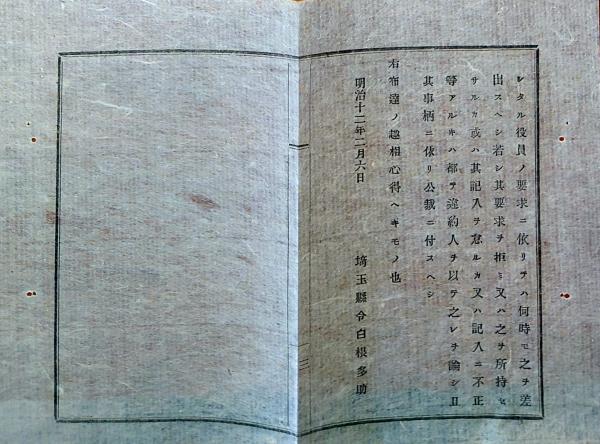 レタル役員ノ要求ニ依リテハ何時モ之ヲ差
出スヘシ若シ其要求ヲ拒ミ又ハ之ヲ所持セ
サルカ或ハ其記入ヲ怠ルカ又ハ記入ニ不正
等アルキハ都テ違約人ヲ以テ之レヲ論シ且
其事柄ニ依リ公裁ニ付スヘシ
右布達ノ趣相心得ヘキモノ也
明治十二年二月六日
埼玉縣令白根多助